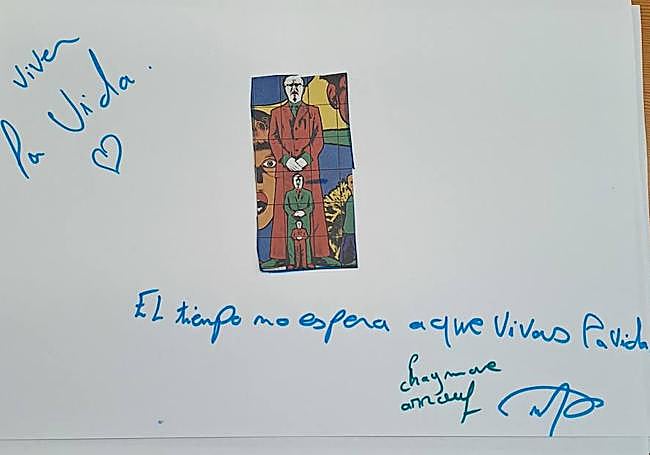 Viver
la Vida.
EL tiempo no espera a que Vivas la vida
chaymae